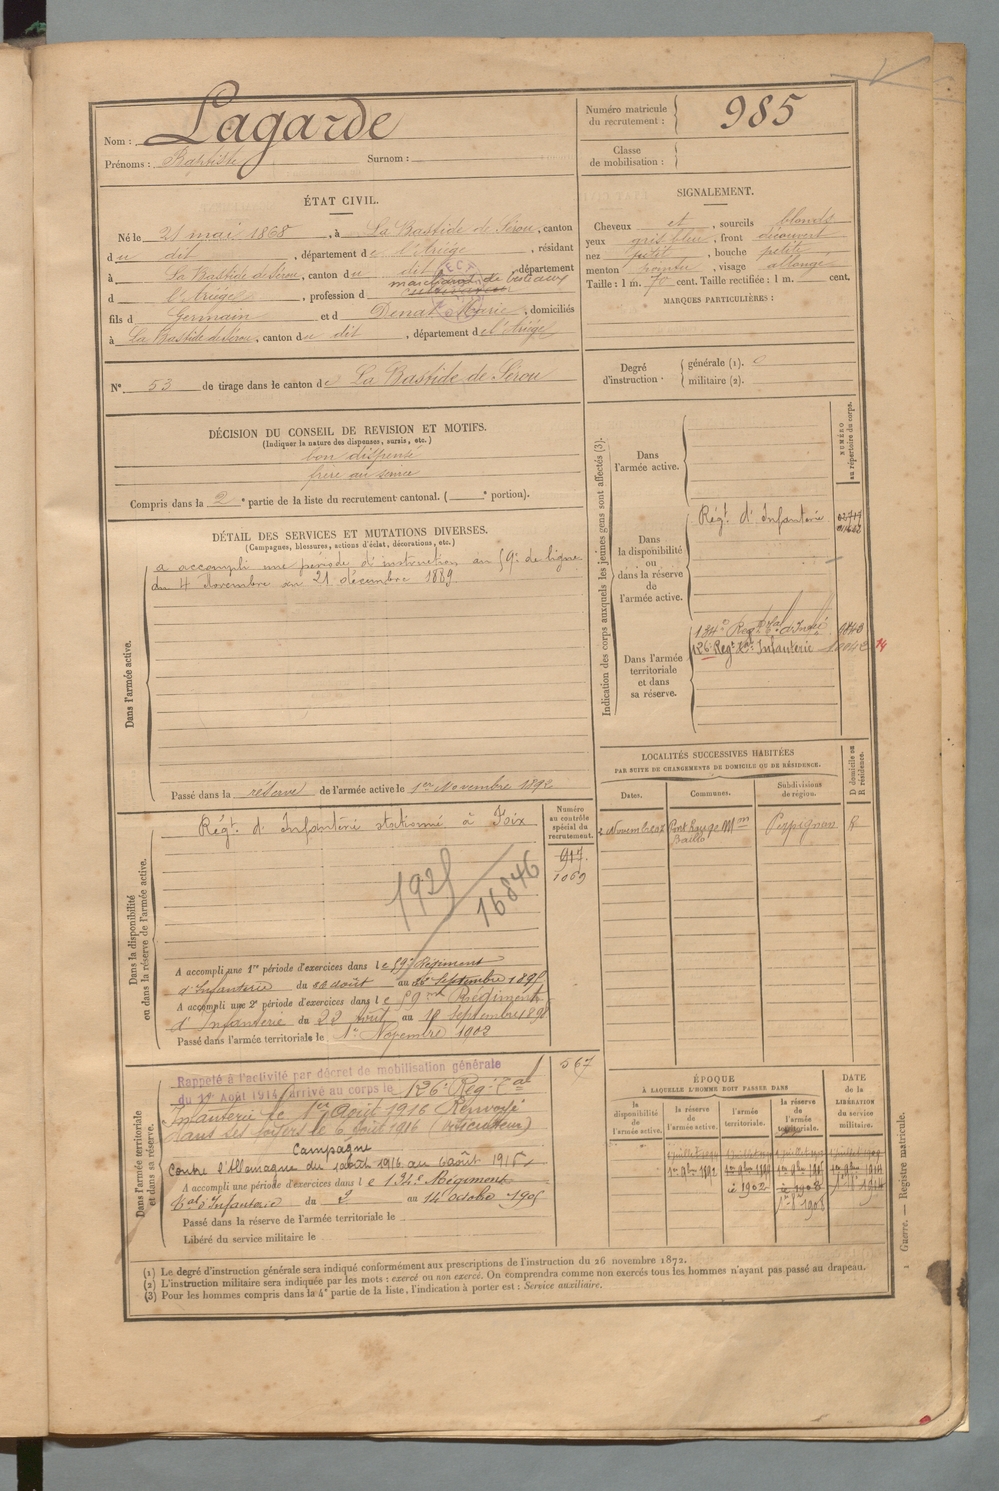 Nom : Lagarde
Prénoms : Baptiste Surnom :
Numéro matricule du recrutement : 985
Classe de mobilisation :
ÉTAT CIVIL.
Né le 21 mai 1868, à La Bastide de Sérou, canton
du dit, département de l'Ariège, résidant
à La Bastide de Sérou, canton du dit, département
marchand de bestiaux
d l'Ariège, profession d cultivateur
fils d Germain et d Denat Marie, domiciliés
à La Bastide de Sérou, canton du dit, département de l'Ariège
N° 53 de tirage dans le canton de La Bastide de Sérou
SIGNALEMENT.
Cheveux et, sourcils blonds
yeux gris bleu, front découvert
nez petit, bouche petite
menton pointu, visage allongé
Taille : 1 m. 70 cent. Taille rectifiée : 1 m. cent.
MARQUES PARTICULIÈRES :
Degré d'instruction. générale (1). 0
militaire (2).
DÉCISION DU CONSEIL DE REVISION ET MOTIFS.
(Indiquer la nature des dispenses, sursis, etc.)
bon dispensé
frère au service
Compris dans la 2e partie de la liste du recrutement cantonal. ( e portion).
DÉTAIL DES SERVICES ET MUTATIONS DIVERSES.
(Campagnes, blessures, actions d'éclat, décorations, etc.)
Dans l'armée active.
a accompli une période d'instruction au 59e de ligne
du 4 Novembre au 21 décembre 1889
Passé dans la réserve de l'armée active le 1er Novembre 1892
Indication des corps auxquels les jeunes gens sont affectés (3).
NUMÉRO au répertoire du corps.
Dans l'armée active.
Dans la disponibilité ou dans la réserve de l'armée active.
Régt d'Infanterie
Dans l'armée territoriale et dans sa réserve.
134e Regt tal d'Infie
126e Regt tal Infanterie
14
Dans la disponibilité ou dans la réserve de l'armée active.
Régt d'Infanterie stationné à Foix
Numéro au contrôle spécial du recrutement.
917.
1069
16846
A accompli une 1re période d'exercices dans le 59e Régiment
d'Infanterie du août au Septembre 189
A accompli une 2e période d'exercices dans le 59me Régiment
d'Infanterie du 22 Août au 18 Septembre 189
Passé dans l'armée territoriale le 1er Novembre 1902
LOCALITÉS SUCCESSIVES HABITÉES
PAR SUITE DE CHANGEMENTS DE DOMICILE OU DE RÉSIDENCE.
Dates. Communes. Subdivisions de région. D domicile ou R résidence.
Novembre Perpignan R
Dans l'armée territoriale et dans sa réserve.
567
Rappelé à l'activité par décret de mobilisation générale
du 1er Août 1914, arrivé au corps le 126e Reg. Tal
Infanterie le 1er Août 1916 Renvoyé
dans ses foyers le 6 Août 1916
Campagne
Contre l'Allemagne du 1 août 1916 au 6 août 1916
A accompli une période d'exercices dans le 134e Régiment
tal d'Infanterie du 2 au 14 octobre 1905
Passé dans la réserve de l'armée territoriale le
Libéré du service militaire le
ÉPOQUE
À LAQUELLE L'HOMME DOIT PASSER DANS
la disponibilité de l'armée active.
la réserve de l'armée active.
l'armée territoriale.
la réserve de l'armée territoriale.
DATE de la LIBÉRATION du service militaire.
1er 9bre 1892
1902
1908
(1) Le degré d'instruction générale sera indiqué conformément aux prescriptions de l'instruction du 26 novembre 1872.
(2) L'instruction militaire sera indiquée par les mots : exercé ou non exercé. On comprendra comme non exercés tous les hommes n'ayant pas passé au drapeau.
(3) Pour les hommes compris dans la 4e partie de la liste, l'indication à porter est : Service auxiliaire.
Guerre. — Registre matricule.